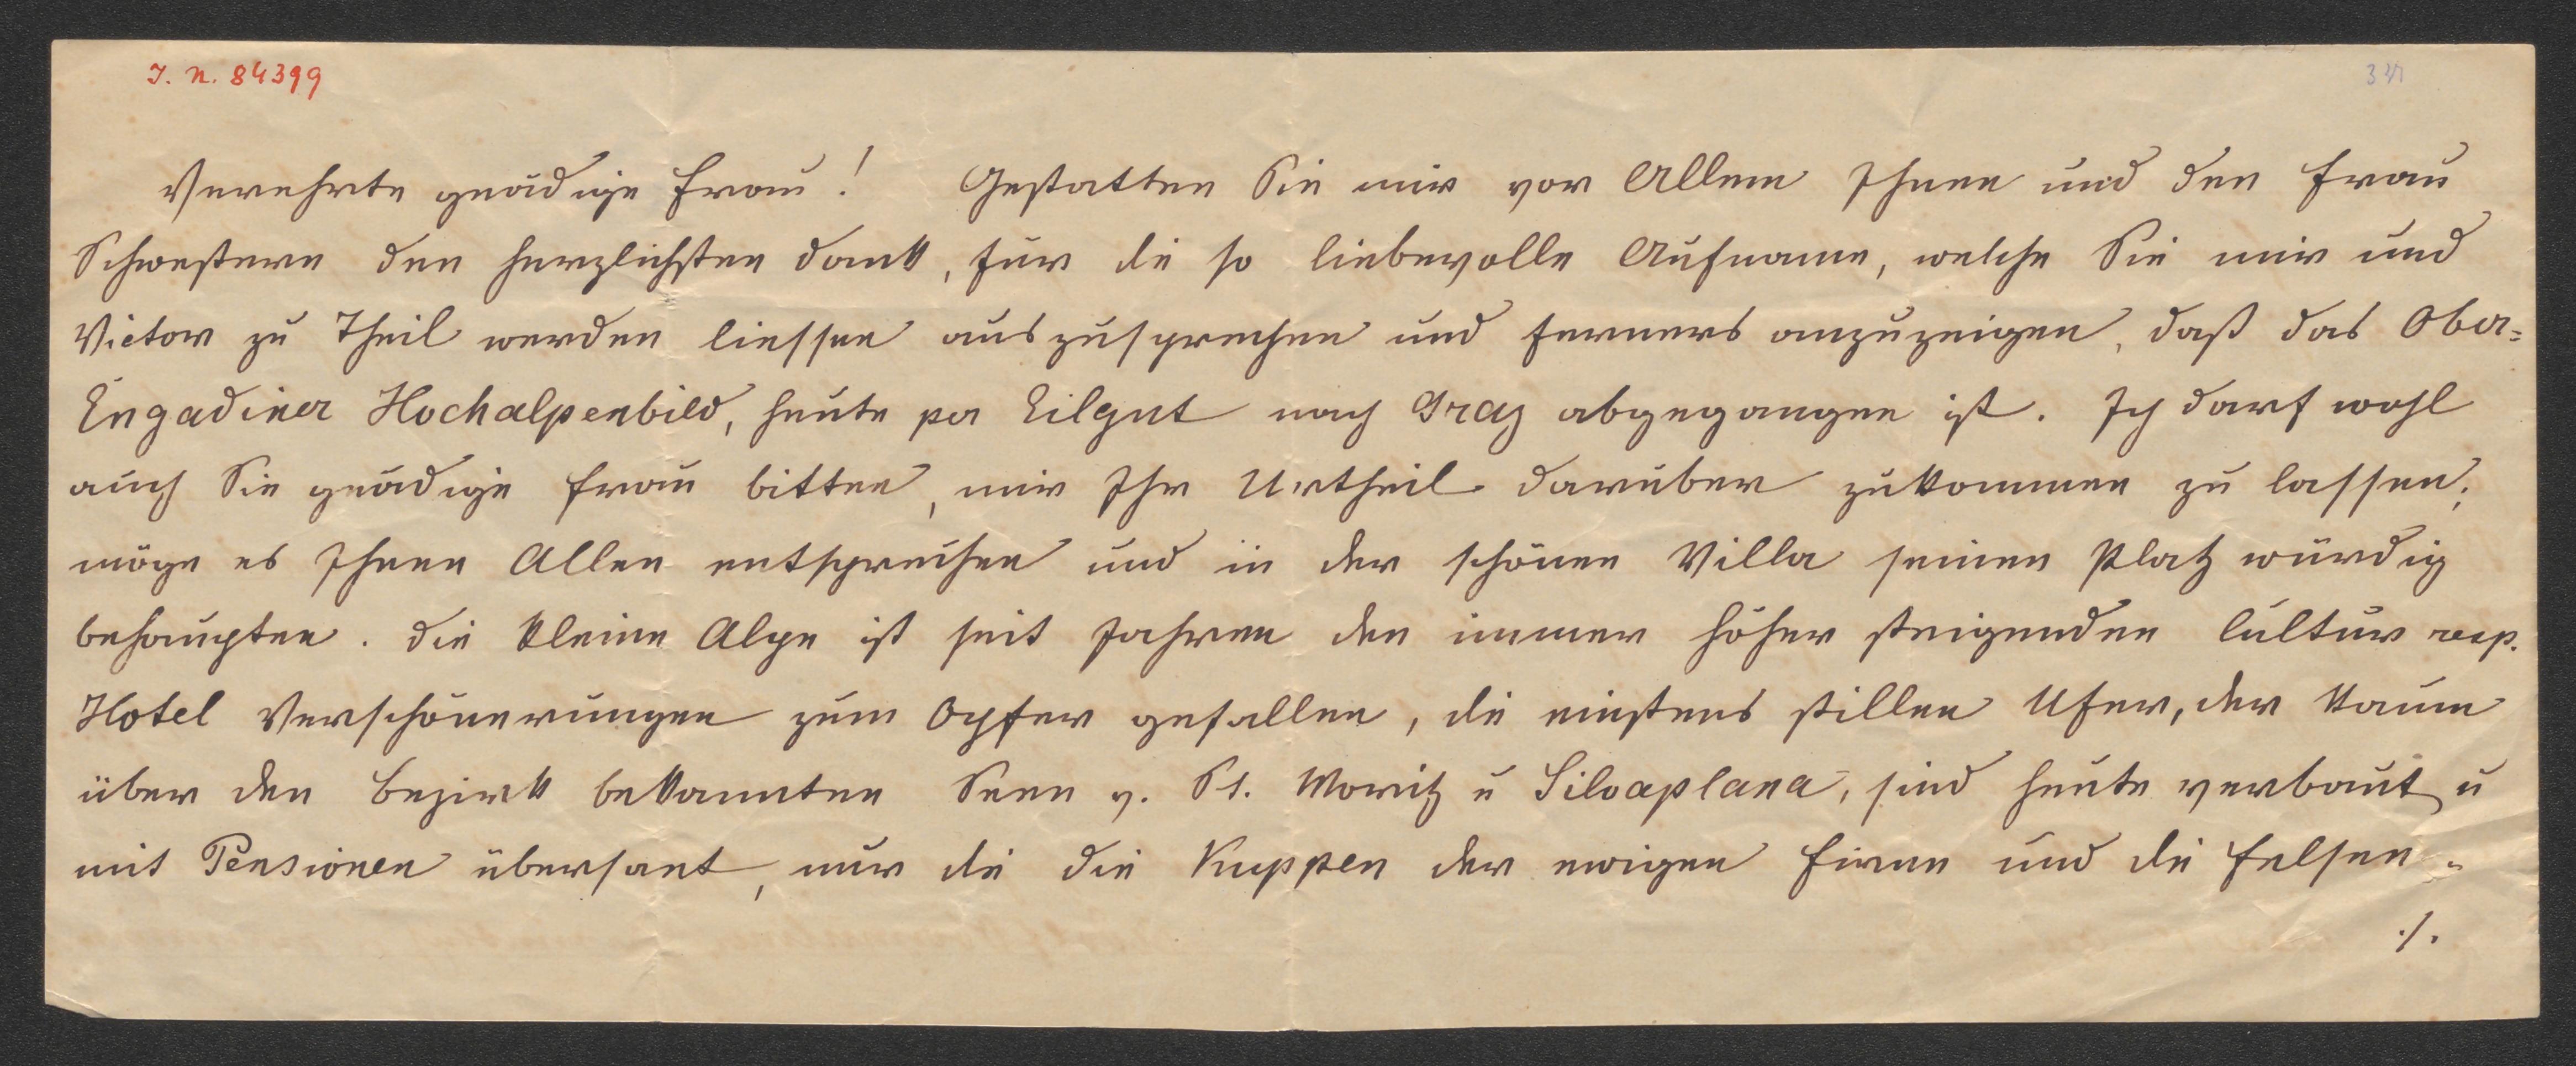 I. N. 84399
Verehrte gnädige Frau! Gestatten Sie mir vor Allem Ihnen und den Frau
Schwestern den herzlichsten Dank, für die so liebevolle Aufname, welche Sie mir und
Victor zu Theil werden liessen auszusprechen und ferners anzuzeigen, daß das Ober=
Engadiner Hochalpenbild, heute per Eilgut nach Graz abgegangen ist. Ich darf wohl
auch Sie gnädige Frau bitten, mir Ihr Urtheil darüber zukommen zu lassen;
möge es Ihnen Allen entsprechen und in der schönen Villa seinen Platz würdig
behaupten. Die kleine Alpe ist seit Jahren den immer höher steigenden Cultur resp.
Hotel Verschönerungen zum Opfer gefallen, die einstens stillen Ufer, der kaum
über den Bezirk bekannten Seen v. St. Moritz u Silvaplana, sind heute verbaut u
mit Pensionen übersaet, nur die die Kuppen der ewigen Firne und die Felsen=
./.